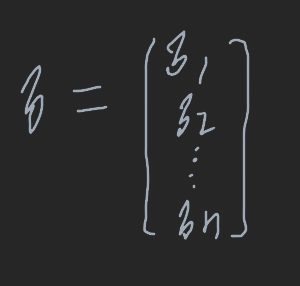 z = [ z1
z2
⋮
zn ]